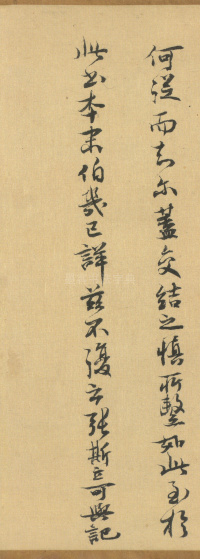 何從而知尔蓋交結之慎所繫如此至於
此書本末伯幾已詳茲不復云張斯立可與記